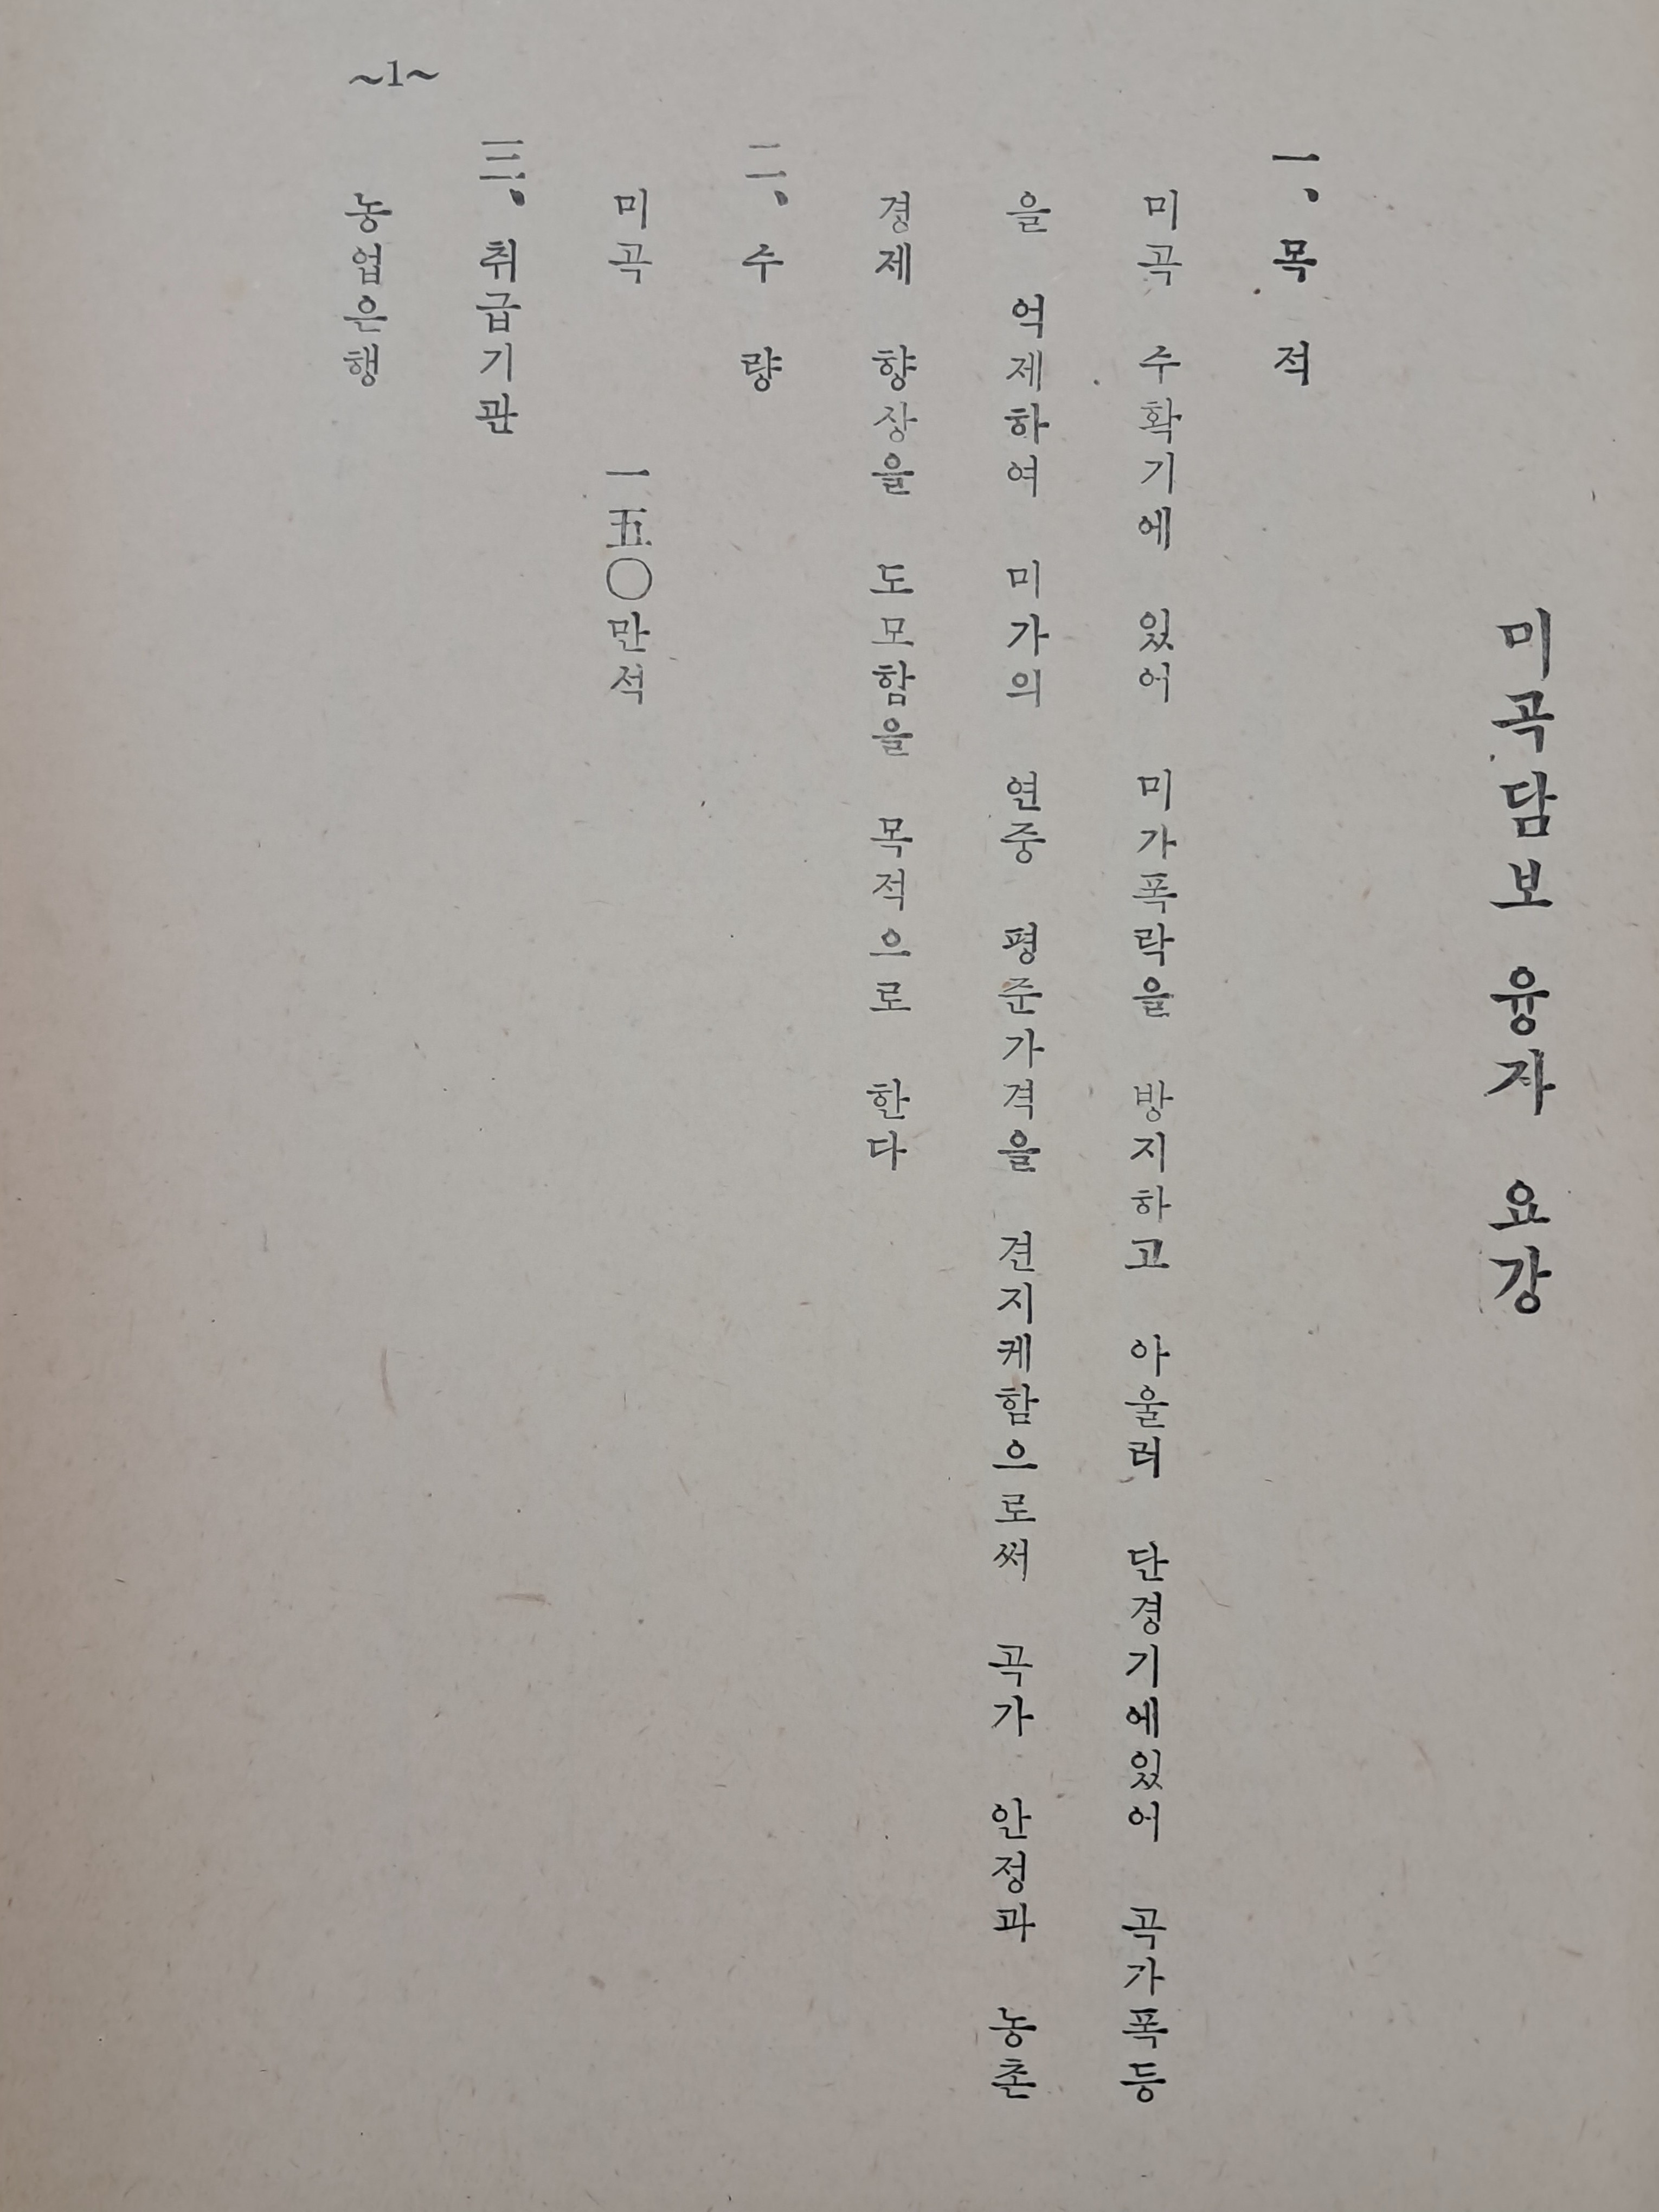 미곡담보 융자 요강
一、목 적
미곡 수확기에 있어 미가폭락을 방지하고 아울러 단경기에있어 곡가폭등
을 억제하여 미가의 연중 평준가격을 견지케함으로써 곡가 안정과 농촌
경제 향상을 도모함을 목적으로 한다
二、수 량
미곡 一五〇만석
三、취급기관
농업은행
~1~